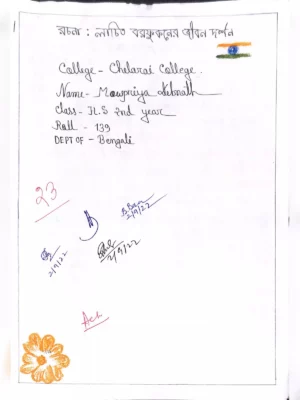 রচনা : লাচিত বরফুকনের জীবন দর্শন
College - Chilarai College.
Name - Moupriya Debnath
Class - H.S 2nd year
Roll - 139
DEPT OF - Bengali
23
2/9/22
2/9/22
2/9/22